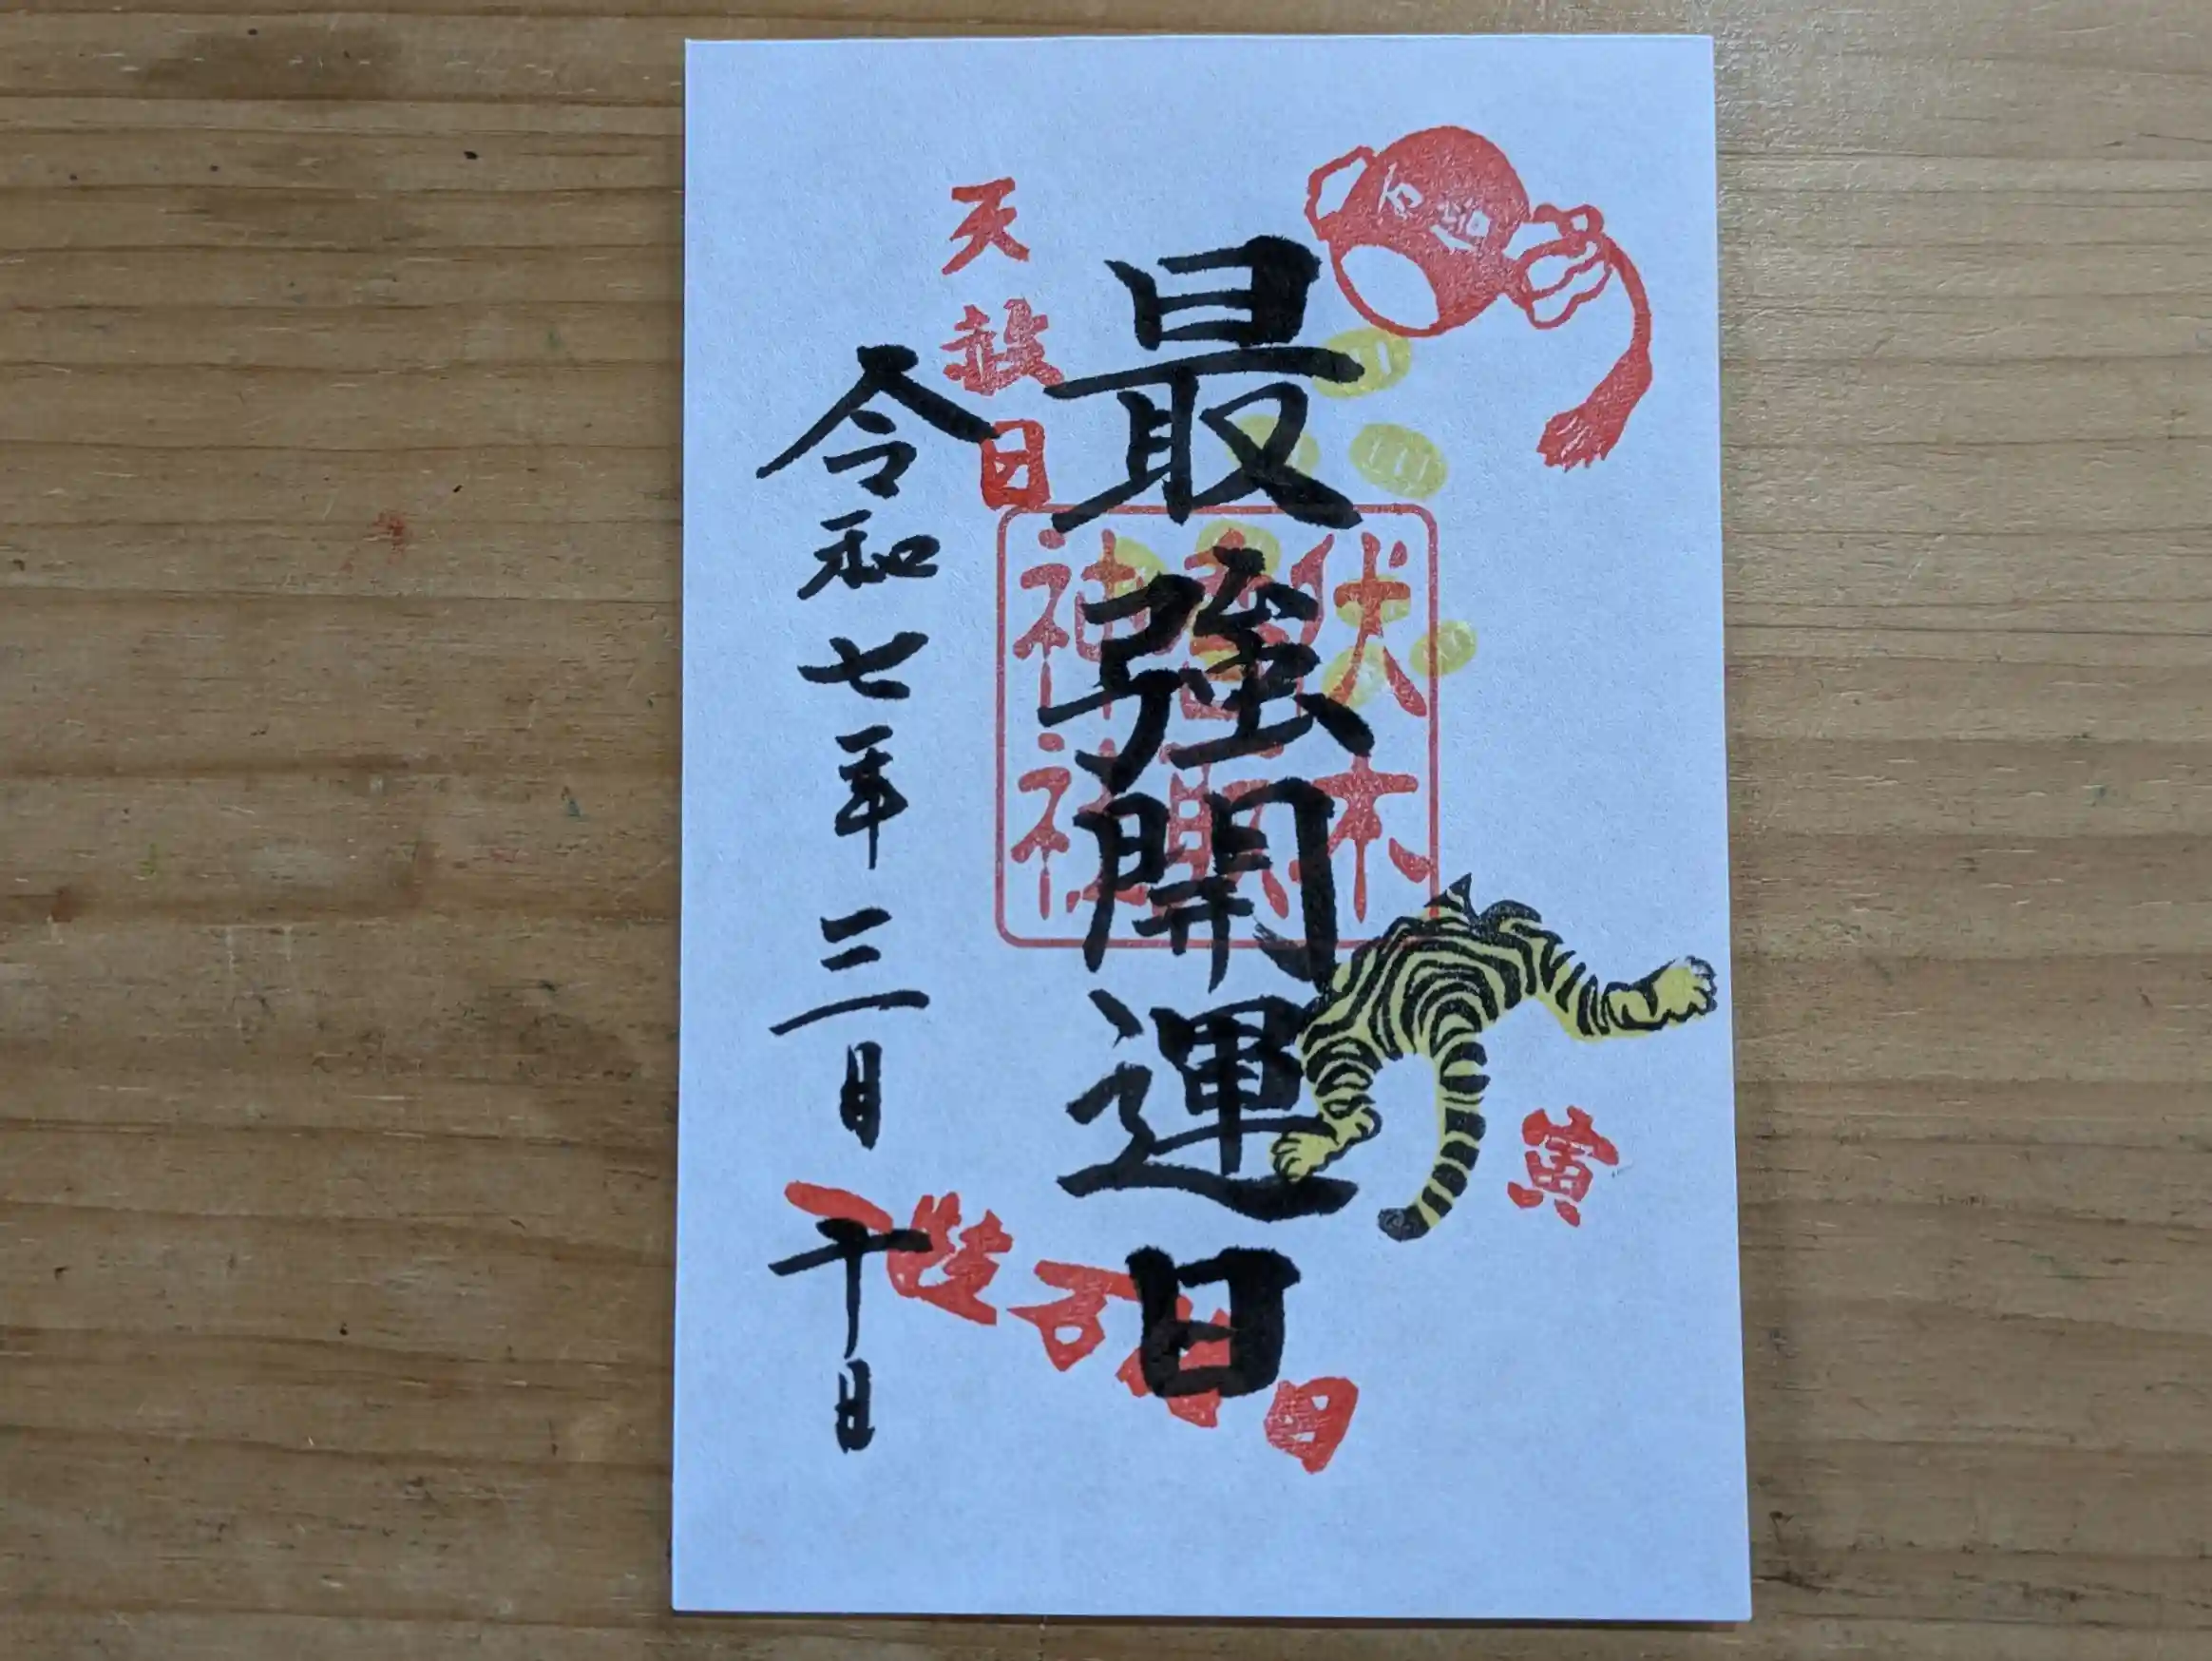 万倍
最強開運日
伏木
香取
神社
寅
天赦日
令和七年三月十日
一粒万倍日